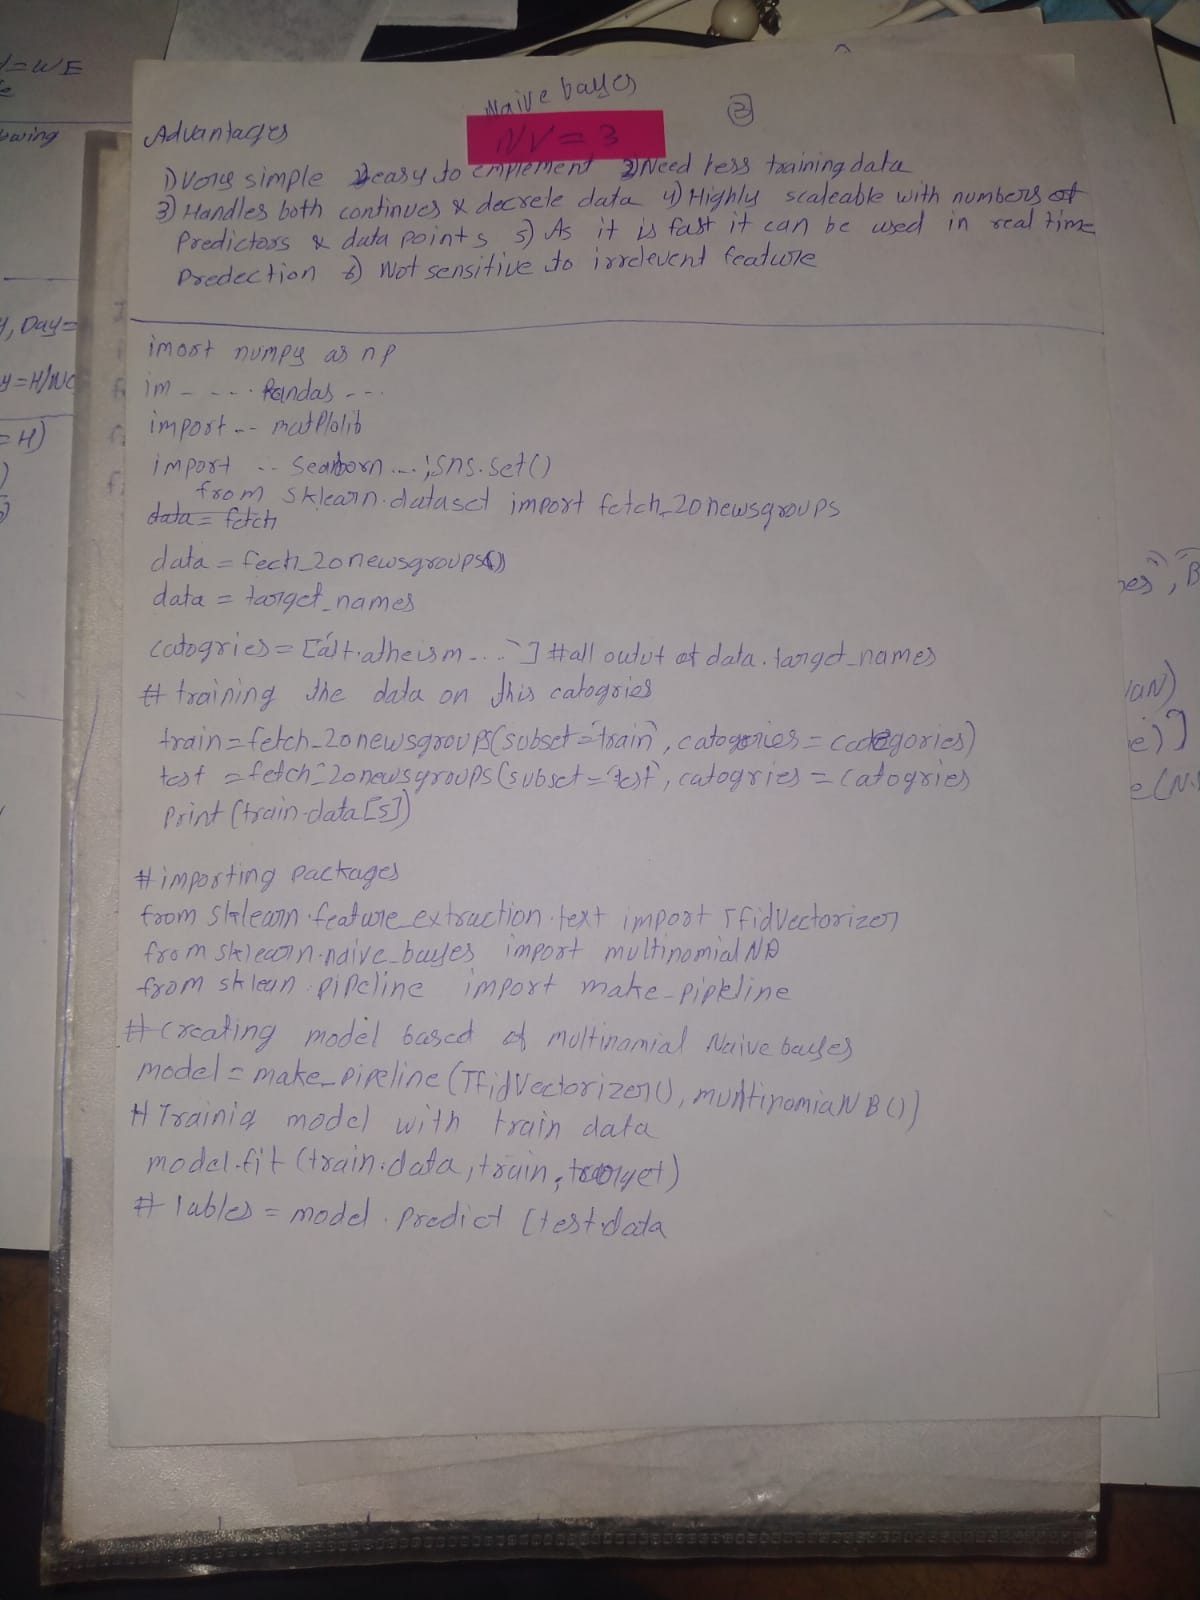 Naive bayes
NV = 3
2
Advantages
1) Very simple 2) easy to emplement 3) Need less training data
3) Handles both continues & decrele data 4) Highly scaleable with numbers of
Predictors & data points 5) As it is fast it can be used in real time
Predection 6) Not sensitive to irrelevent feature
imort numpy as np
im - - - . Pandas - - .
import -- matPlolib
import -- Seaborn ... ; sns.set()
from sklearn.dataset import fetch_20newsgroups
data = fetch
data = fech_20newsgroups()
data = target_names
catogries = ['alt.atheism...'] #all outut of data.target_names
# training the data on this catogries
train = fetch_20newsgroups(subset='train', catogories = categories)
test = fetch_20newsgroups(subset='test', catogries = catogries
Print (train.data[5])
# importing packages
from sklearn.feature_extraction.text import TfidVectorizer
from sklearn.naive_bayes import multinomialNB
from sklean.pipeline import make_pipeline
# Creating model based of multinamial Naive bayes
model = make_pipeline(TfidVectorizer(), multinomiaNB())
# Trainig model with train data
model.fit (train.data, train, target)
# lables = model.predict (test.data
y = WE
owing
y, Day =
= H)